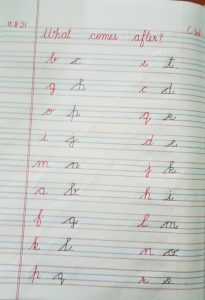 11.8.21 C.W
What comes after?
b c s t
g h c d
o p q r
i j d e
m n j k
a b h i
f g l m
k l n o
p q r s